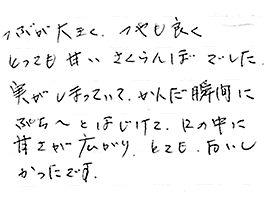 つぶが大きく、つやも良く
とっても甘いさくらんぼでした。
実がしまっていて、かんだ瞬間に
ぷち〜とはじけて、口の中に
甘さが広がり、とても、おいし
かったです。